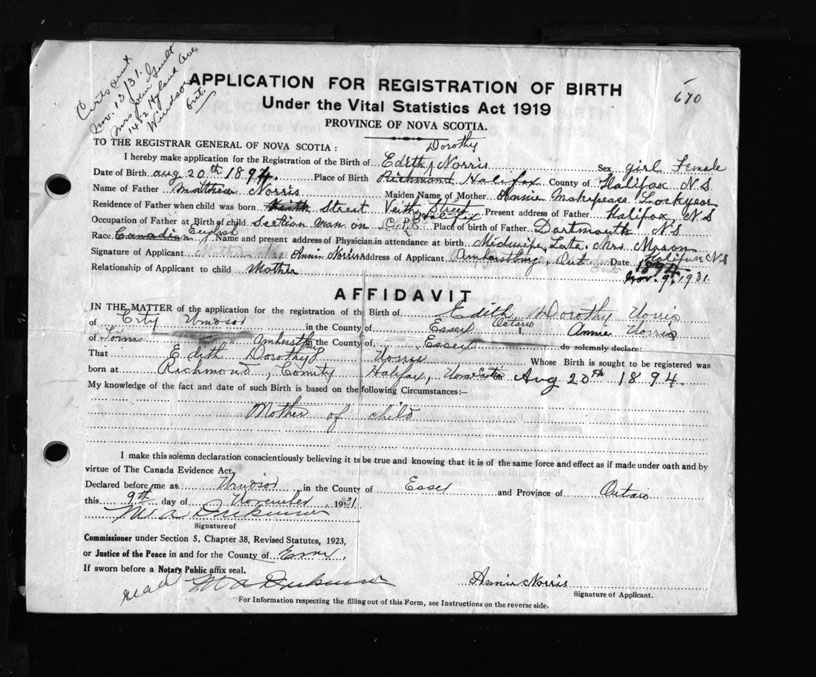 Certs sent
Nov. 13/31.
Mrs John Gault
1452 Hyland Ave
Windsor
Ont.
APPLICATION FOR REGISTRATION OF BIRTH
Under the Vital Statistics Act 1919
670
PROVINCE OF NOVA SCOTIA.
TO THE REGISTRAR GENERAL OF NOVA SCOTIA :
I hereby make application for the Registration of the Birth of Edith Dorothy Norris Sex girl Female
Date of Birth aug 20th 1894. Place of Birth Richmond Halifax County of Halifax N.S
Name of Father Norris Maiden Name of Mother Annie Makepeace Lockyear
Residence of Father when child was born Street Veith Street Halifax Present address of Father Halifax, N S
Occupation of Father at Birth of child Section man on Place of birth of Father Dartmouth N.S
Race Canadian English Name and present address of Physician in attendance at birth Midwife, Late, Mrs. Halifax N S
Signature of Applicant Annie Norris Address of Applicant Amherstburg, Ont Date 1894 Nov. 9th, 1931
Relationship of Applicant to child Mother
AFFIDAVIT
IN THE MATTER of the application for the registration of the Birth of Edith Dorothy Norris
of City Windsor in the County of Essex Ontario Annie Norris
of Town Amherstburg in the County of Essex do solemnly declare:
That Edith Dorothy Norris Whose Birth is sought to be registered was
born at Richmond, County Halifax, Aug 20th 1894.
My knowledge of the fact and date of such Birth is based on the following Circumstances:—
Mother of child
I make this solemn declaration conscientiously believing it to be true and knowing that it is of the same force and effect as if made under oath and by
virtue of The Canada Evidence Act,
Declared before me at Windsor in the County of Essex and Province of Ontario
this 9th day of November 1931
Signature of
Commissioner under Section 5, Chapter 38, Revised Statutes, 1923,
or Justice of the Peace in and for the County of Essex.
If sworn before a Notary Public affix seal.
read
Annie Norris
Signature of Applicant.
For Information respecting the filling out of this Form, see Instructions on the reverse side.